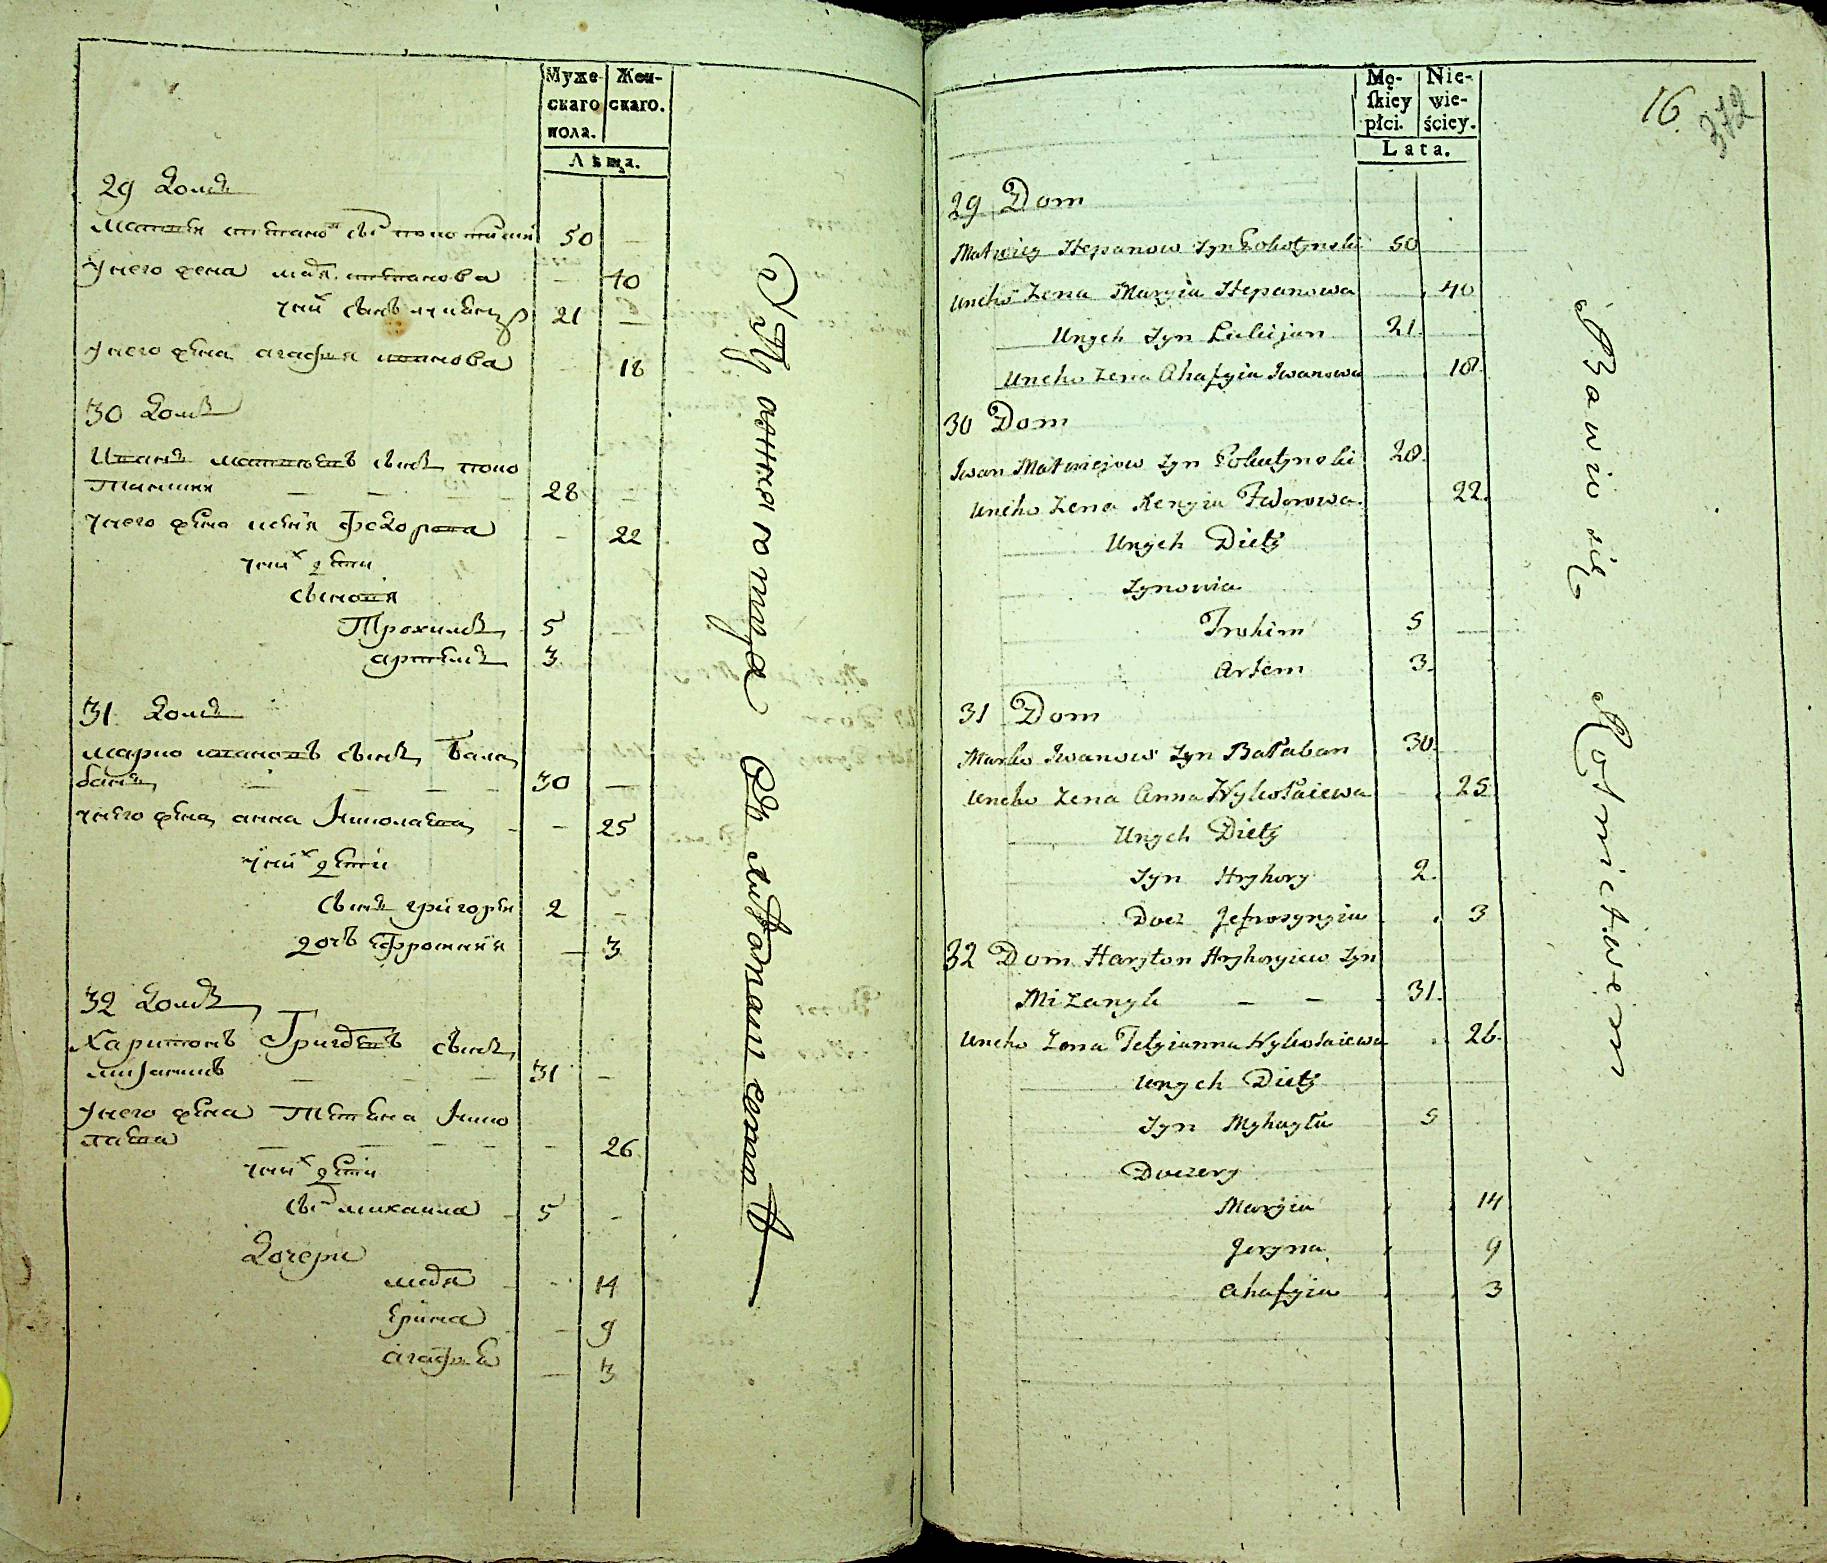 Муже-
скаго
пола.
Жен-
скаго.
Лѣта.
29 Домъ
Матвѣй степановъ сынъ 50 —
У него жена марья степанова — 40
У них сынъ 21 —
У него жена агафия иванова — 18
30 Домъ
Иванъ матвѣевъ сынъ поко
тинский — — 28 —
У него жена Федорова — 22
У них дѣти
сыновья
Трохимъ 5
артемъ 3
31 Домъ
марко ивановъ сынъ Бала
банъ — — — 30 —
У него жена анна Николаева — 25
У них дѣти
сынъ григорей 2 —
дочь Ефросиния — 3
32 Домъ
Харитонъ Григорьевъ сынъ
— — — 31 —
У него жена Тетяна Нико
лаева — — — — 26
У них дѣти
сынъ михаила 5 —
Дочери
марья — 14
Ерина — 9
агафия — 3
Mę-
skiey
płci.
Nie-
wie-
ściey.
Lata.
16.
372
29 Dom
Matwiey Stepanow Syn Pokotynski 50
Uncho Zena Maryia Stepanowa 40
Unych Syn Łukijan 21.
Uncho Zena Ahafyia Iwanowa 18.
30 Dom
Iwan Matwiejow Syn Pokutynski 28.
Uncho Zena Xenyia Fedorowa. 22.
Unych Dietÿ
Synowia
Trohim 5
Artem 3.
31 Dom
Marko Iwanow Syn Bałaban 30.
Uncho Zena Anna Nykołaiewa 25
Unych Dietÿ
Syn Hryhory 2.
Docz Jefrosynyia 3
32 Dom Haryton Hryhoryiew Syn
Mizanyk — — 31.
Uncho Zena Tetyianna Nykołaiewa 26.
Unych Dietÿ
Syn Myhayła 5
Doczery
Maryia 14
Jeryna 9
Ahafyia 3
Bawi się Rolnictwem